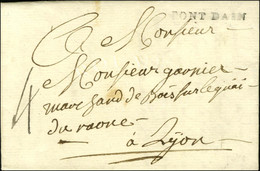 PONT DAIN
A Monsieur
Monsieur garnier
marchand de Bois sur le quai
du raone
à Lyon